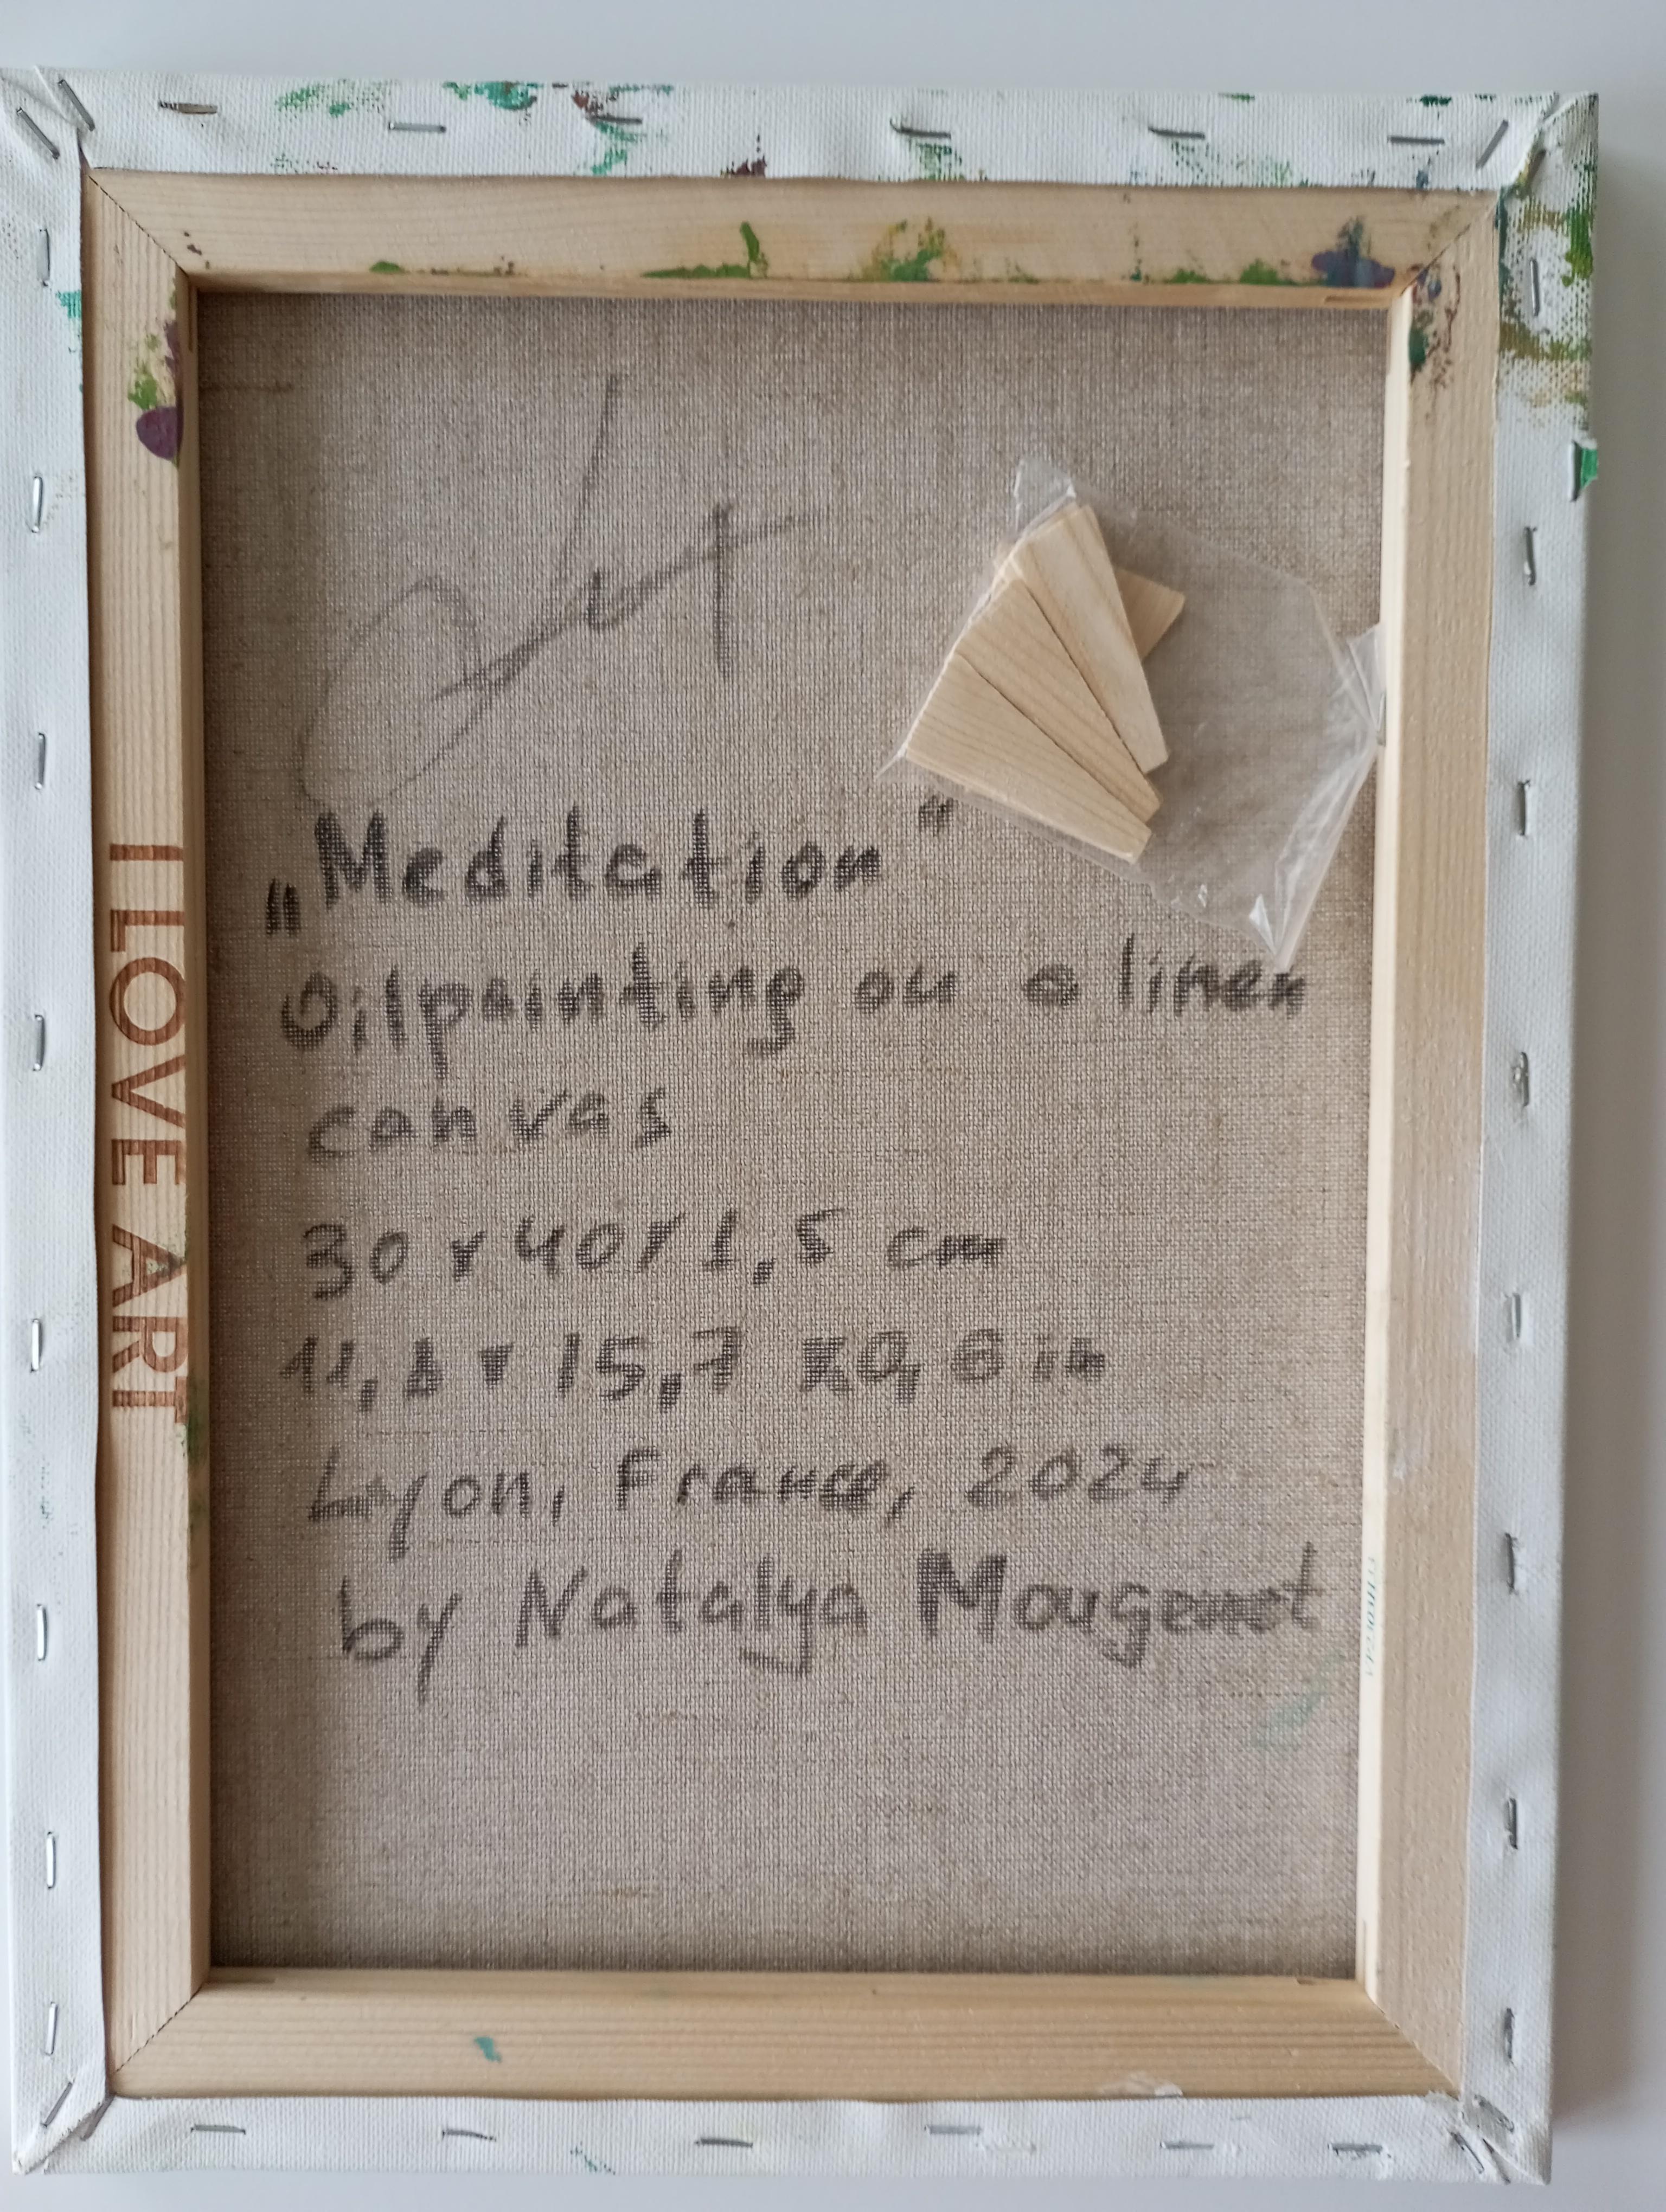 „Meditation"
Oilpainting on a linen
canvas
30 x 40 x 1,5 cm
11,8 x 15,7 x 0,6 in
Lyon, France, 2024
by Natalya Mougenot
I LOVE ART